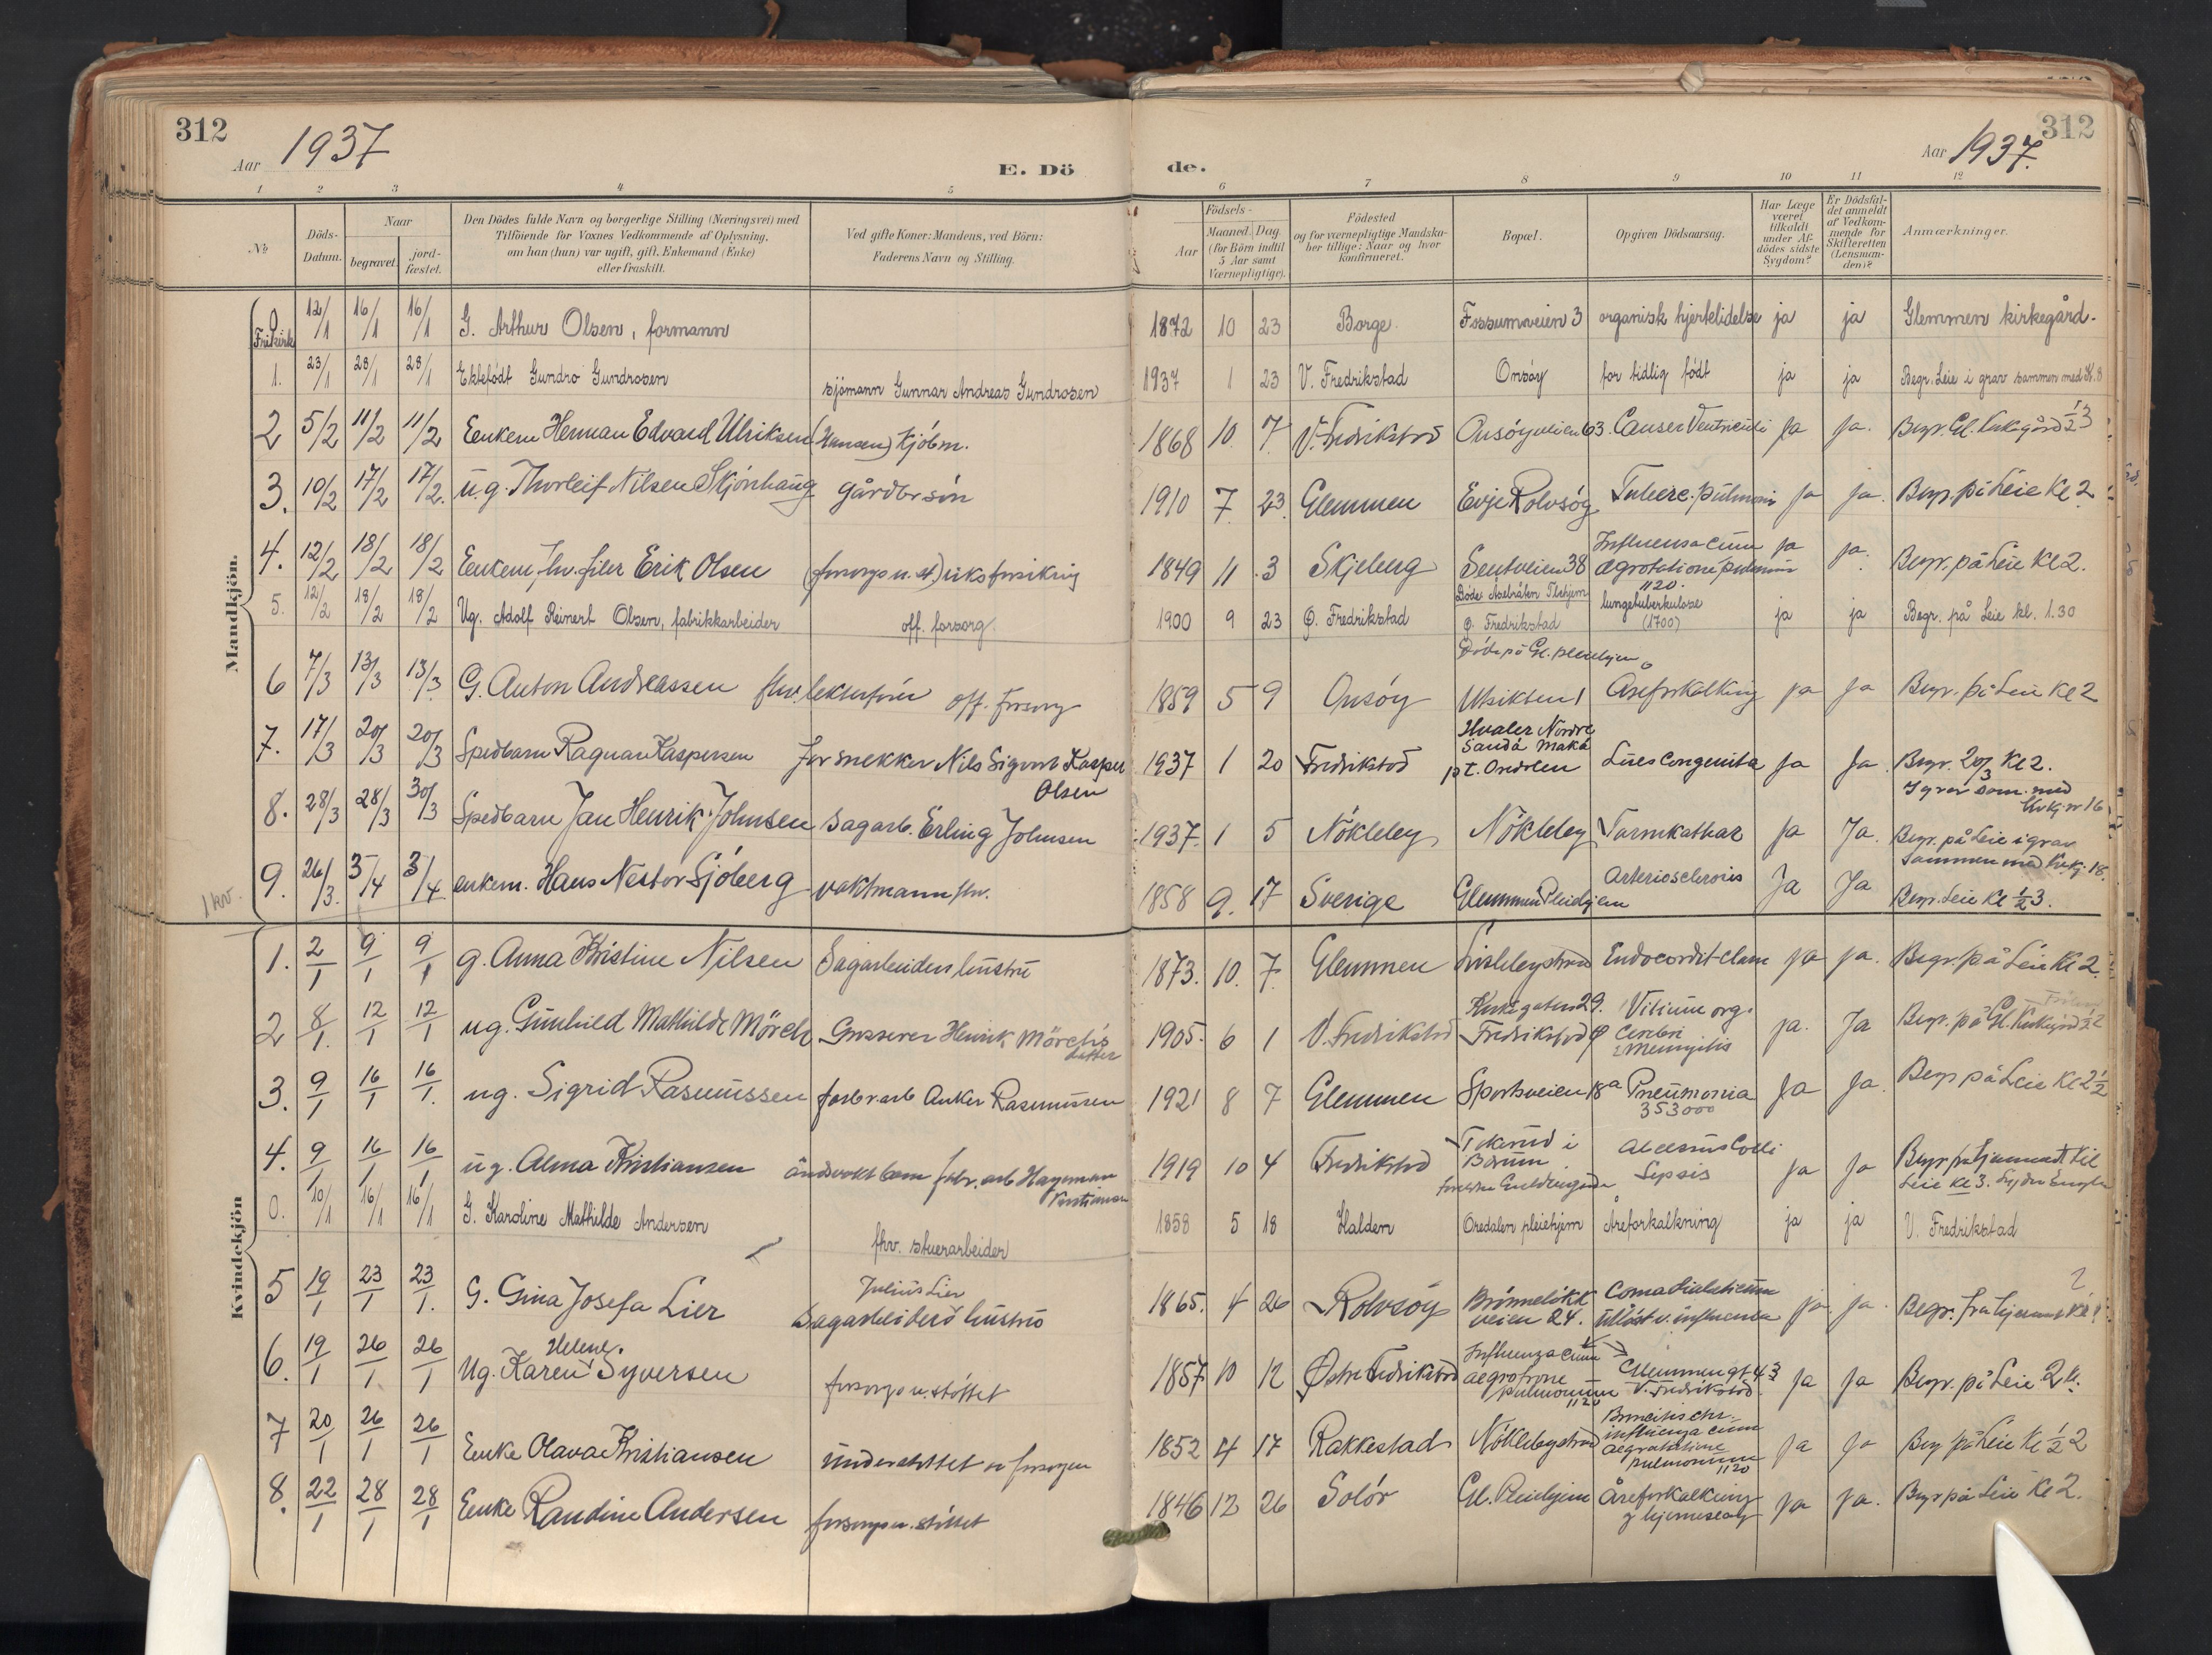 312
Aar 1937
E. Dö
1 2 3 4 5
No
Döds-Datum.
Naar
begravet.
jord-fæstet.
Den Dödes fulde Navn og borgerlige Stilling (Næringsvei) med
Tilföiende for Voxnes Vedkommende af Oplysning,
om han (hun) var ugift, gift, Enkemand (Enke)
eller fraskilt.
Ved gifte Koner: Mandens, ved Börn:
Faderens Navn og Stilling.
de.
Aar 1937.
312
6 7 8 9 10 11 12
Födsels-
Aar
Maaned. Dag.
(for Börn indtil
5 Aar samt
Værnepligtige).
Födested
og for værnepligtige Mandska-
ber tillige: Naar og hvor
konfirmeret.
Bopæl.
Opgiven Dödsaarsag.
Har Læge
været
tilkaldt
under Af-
dödes sidste
Sygdom?
Er Dödsfal-
det anmeldt
af Vedkom-
mende for
Skifteretten
(Lensman-
den)?
Anmærkninger.
Mandkjön.
0 Frikirk 12/1 16/1 16/1 G. Arthur Olsen, formann 1872 10 23 Borge Fossumveien 3 organisk hjertelidelse ja ja Glemmen kirkegård.
1. 23/1 28/1 28/1 Ektefödt Gundro Gundrosen sjömann Gunnar Andreas Gundrosen 1937 1 23 V. Fredrikstad Onsöy for tidlig födt ja ja Begr. Leie i grav sammen med K. 8
2 5/2 11/2 11/2 Enkem Herman Edvard Ulriksen (Hansen) kjöbm. 1868 10. 7. V. Fredrikstad Onsöyveien 63. Cancer Ventriculi ja ja. Begr. Gl. Kirkegård ½3
3. 10/2 17/2 17/2. ug. Thorleif Nilsen Skjönhaug gårdbr sön 1910 7. 23. Glemmen Evje Rolvsöy Tuberc. pulmonis ja ja. Begr. på Leie Kl 2
4. 12/2 18/2 18/2 Enkem, fhv. filer Erik Olsen (forsorgs u. st) riksforsikring 1849 11. 3 Skjeberg Seutveien 38 Influensa cum ægrotatione pulmonis 1120. ja ja. Begr. på Leie Kl 2.
5. 12/2 18/2 18/2 Ug. Adolf Reinert Olsen, fabrikkarbeider off. forsorg. 1900 9 23 Ø. Fredrikstad Döde Ö. Fredrikstad lungetuberkulose (1700) ja ja Begr. på Leie kl. 1.30
6 7/3 13/3 13/3 G. Anton Andreassen fhv. off. forsorg 1859 5 9 Onsöy Döde på Gl. pleiehjem Utsikten 1 Åreforkalkning ja ja Begr. på Leie Kl 2
7. 17/3 20/3 20/3 Spedbarn Ragnar Kaspersen Far snekker Nils Sigurd Kasper Olsen 1937 1 20 Fredrikstad Hvaler Nordre Sandö p t. Oredalen Lues Congenita ja ja. Begr. 20/3 Kl 2. I grav sam. med Kvkj. nr 16
8. 28/3 28/3 30/3 Spedbarn Jan Henrik Johnsen sagarb. Erling Johnsen 1937. 1 5 Nökleby Nökleby Tarmkathar ja Ja. Begr. på Leie i grav sammen med Kvkj. 18.
1 kv.
9. 26/3. 3/4 3/4 enkem. Hans Nestor Sjöberg vaktmann fhv. 1858 9. 17 Sverige Glemmen Pleiehjem Arteriosclerosis Ja Ja Begr. Leie Kl ½3.
Kvindekjön
1. 2/1 9/1 9/1 g. Anna Kristine Nilsen Sagarbeiders hustru 1873. 10. 7. Glemmen Endocordit ja ja. Begr. på Leie Kl 2.
2 8/1. 12/1 12/1 ug. Gunhild Mathilde Mörch Grosserer Henrik Mörch's datter 1905. 6 1 V. Fredrikstad Fredrikstad Vitium org. Cerebri Meningitis ja. Ja Begr. på Gl. Kirkegård ½2
3. 9/1 16/1 16/1. ug. Sigrid Rasmussen fabr arb Anker Rasmussen 1921 8 7 Glemmen Sportsveien 18a Pneumonia 353000 Ja Ja. Begr på Leie Kl 2½
4. 9/1 16/1 16/1 ug. Alma Kristiansen åndssvakt barn fabr. arb Hageman Kristiansen 1919 10 4 Fredrikstad Tokerud i Bærum Abcessus Colli Sepsis ja ja Begr fra hjemmet til Leie Kl 3.
0. 10/1 16/1 16/1 G. Karoline Mathilde Andersen fhv. stuerarbeider 1858 5 18 Halden Oredalen pleiehjem Åreforkalkning ja ja V. Fredrikstad
5 19/1 23/1 23/1. G. Gina Josefa Lier Julius Lier Sagarbeiders hustru 1865. 4 26 Rolvsöy Brönnelökk veien 24. Coma utlöst v. influensa ja ja. Begr. fra hjemmet Kl
6. 19/1 26/1. 26/1 Ug. Karen Helene Syversen forsorgs u. stöttet 1857 10 12 Östre Fredrikstad Influenza cum ægrotione pulmonum 1120 Glemmengt 43 V. Fredrikstad. ja ja Begr. på Leie 2
7 20/1 26/1 26/1 Enke Olava Kristiansen understöttet av forsorgen 1852 4 17 Rakkestad Bronchitis chr. influenza cum ægrotatione pulmonum 1120 ja ja Begr på Leie Kl ½2
8. 22/1 28/1 28/1 Enke Randine Andersen forsorgs u. stöttet 1846 12 26 Solör Gl. Pleiehjem Åreforkalkning ja ja. Begr på Leie Kl 2.